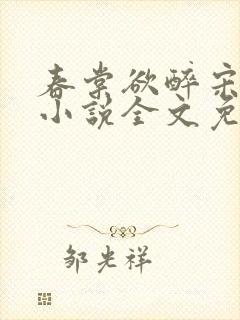 春棠欲醉宋
小说全文免
邹光祥